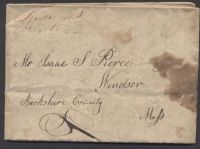 Mr Isaac S Pierce
Windsor
Berkshire County
Mass